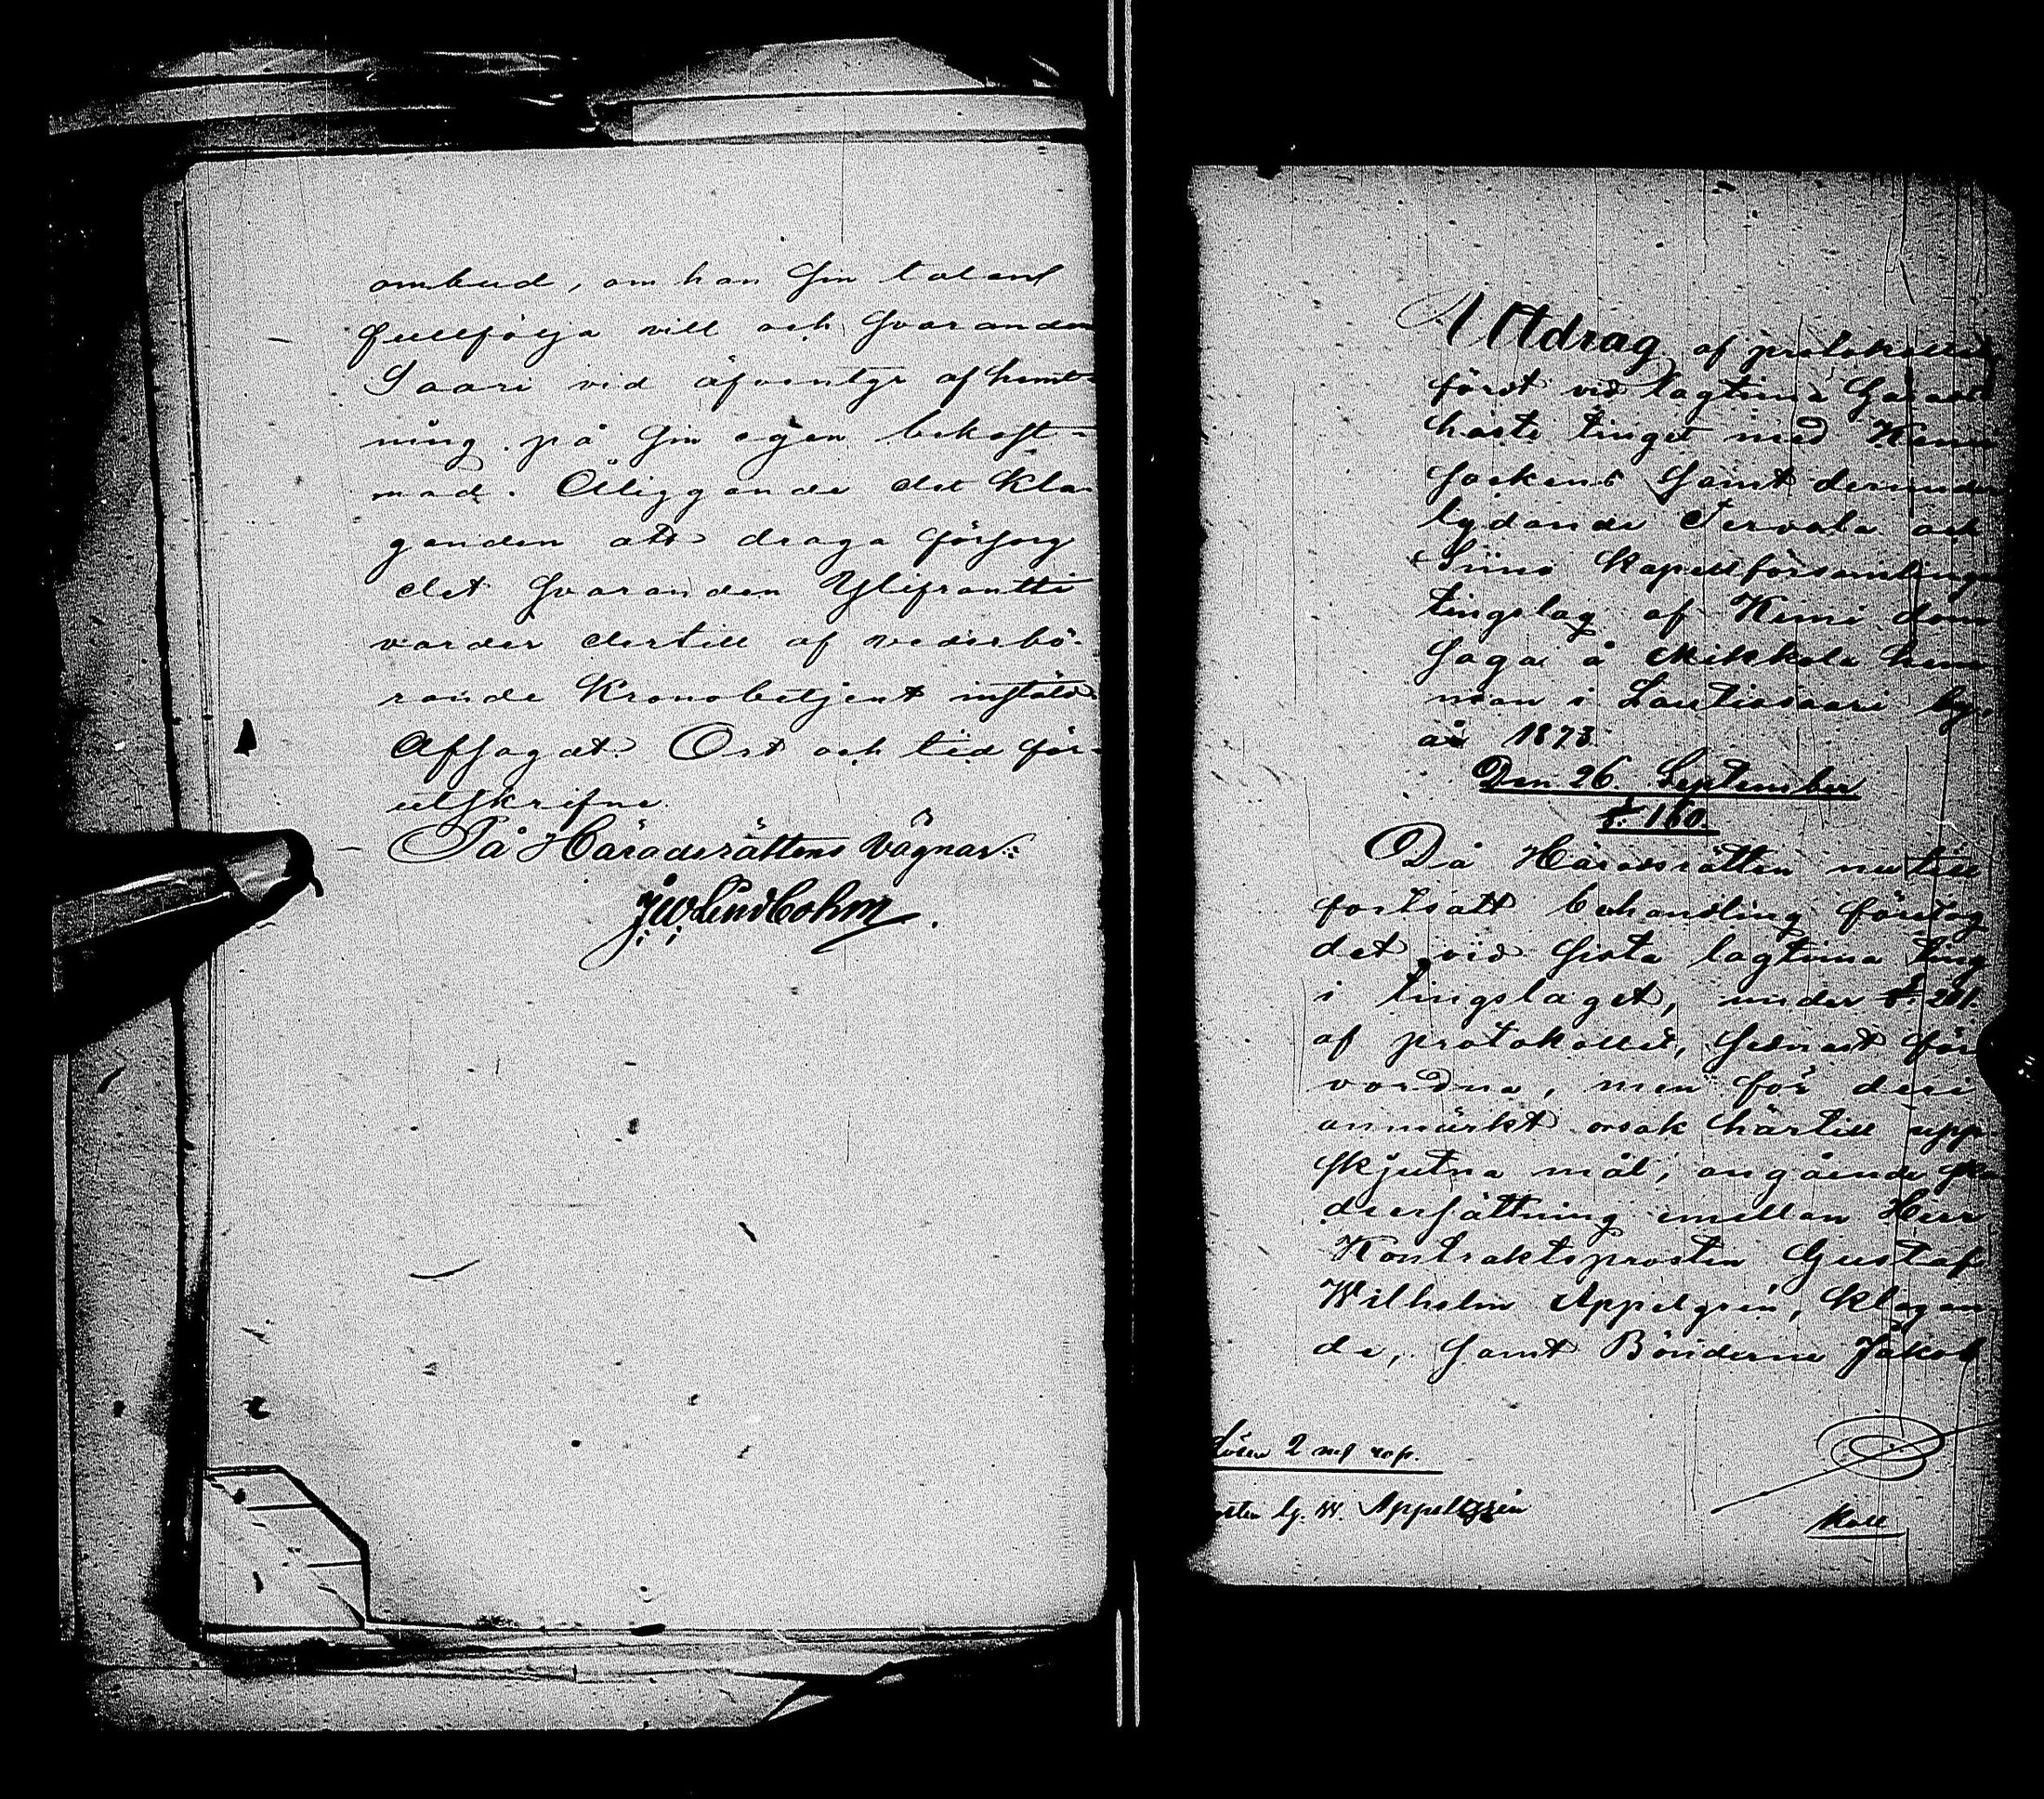 ombud, om han sin talan
fullfölja vill och svaranden
Saari vid äfventyr af hemt-
ning på sin egen bekost-
nad. Åliggande det kla-
ganden att draga försorg
det svaranden Ylifrantti
varder dertill af vederbö-
rande Kronobetjent instäld
Afsagdt. Ort och tid för-
utskrifne.
På Häradsrättens Vägnar:
J W Lindbohm.
Utdrag af protokollet
fördt vid lagtima
höste tinget med Kemi
Sockens samt derunder
lydande Tervola och
Simo kapellförsamlingars
tingslag af Kemi dom
saga å Mikkola hem
man i Lautiosaari by,
år 1873.
Den 26. September
§. 160.
Då Häradsrätten nu till
fortsatt behandling företog
det vid sista lagtima ting
i tingslaget, under §. 261.
af protokollet, sednast för
vordna, men för deri
anmärkt orsak härtill upp
skjutna mål, angående ska
deersättning emellan Herr
Kontraktsprosten Gustaf
Wilhelm Appelgrén, klagan
de, samt Bönderne Jakob
Lösen 2 mk
osten G. W. Appellgrén